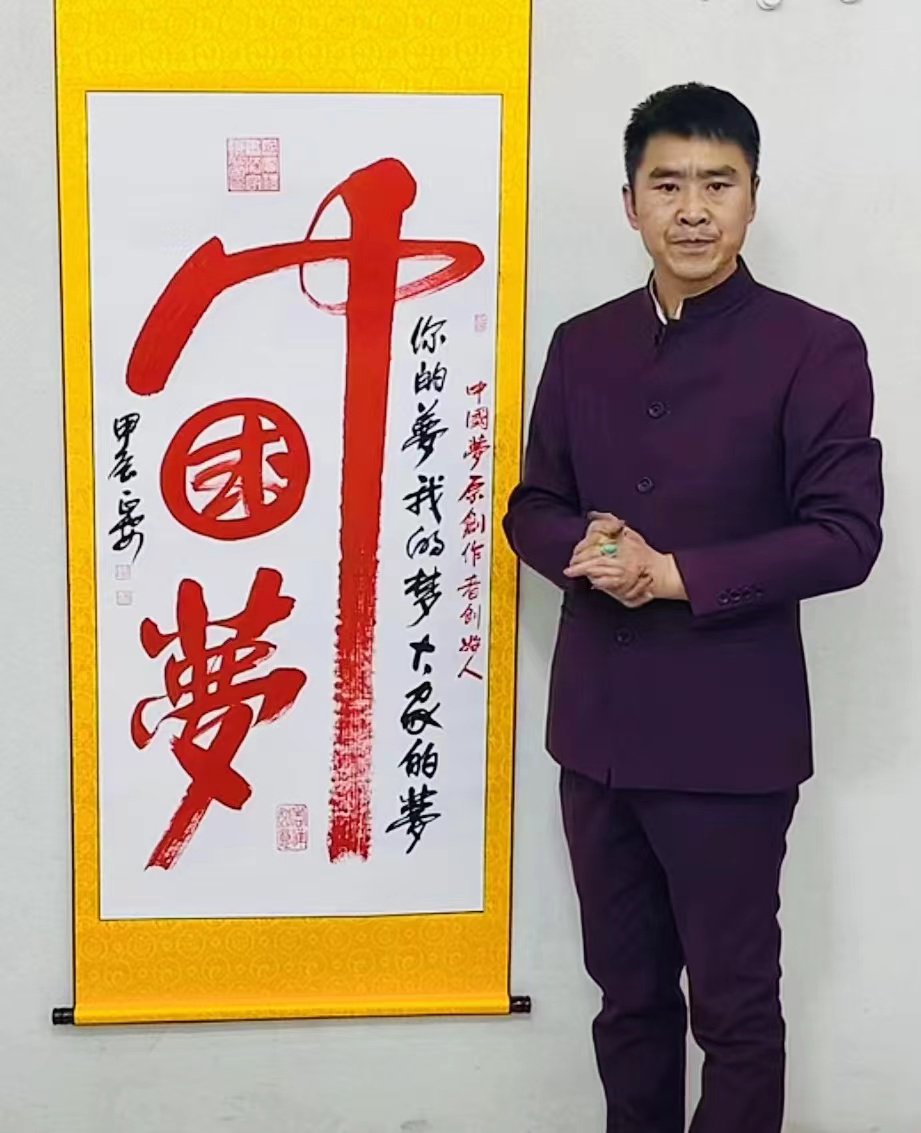 中國夢原創作者創始人
你的夢我的梦大家的夢
中國夢
甲辰